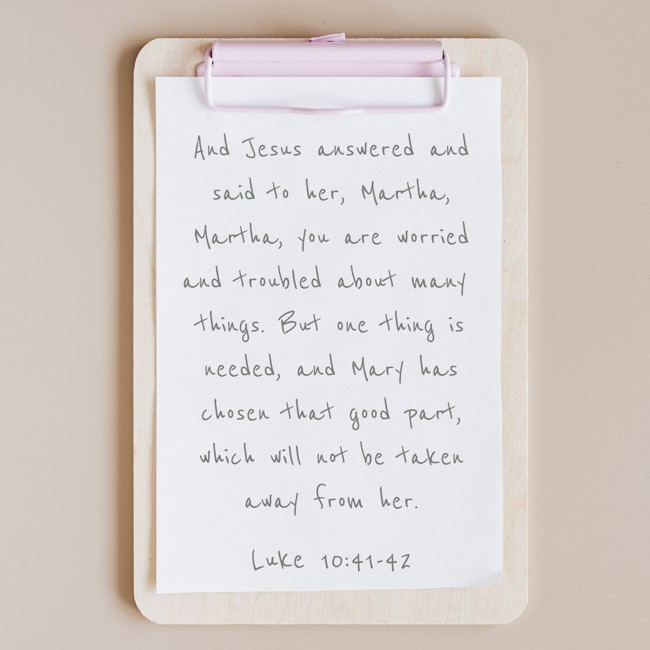 And Jesus answered and
said to her, Martha,
Martha, you are worried
and troubled about many
things. But one thing is
needed, and Mary has
chosen that good part,
which will not be taken
away from her.
Luke 10:41-42